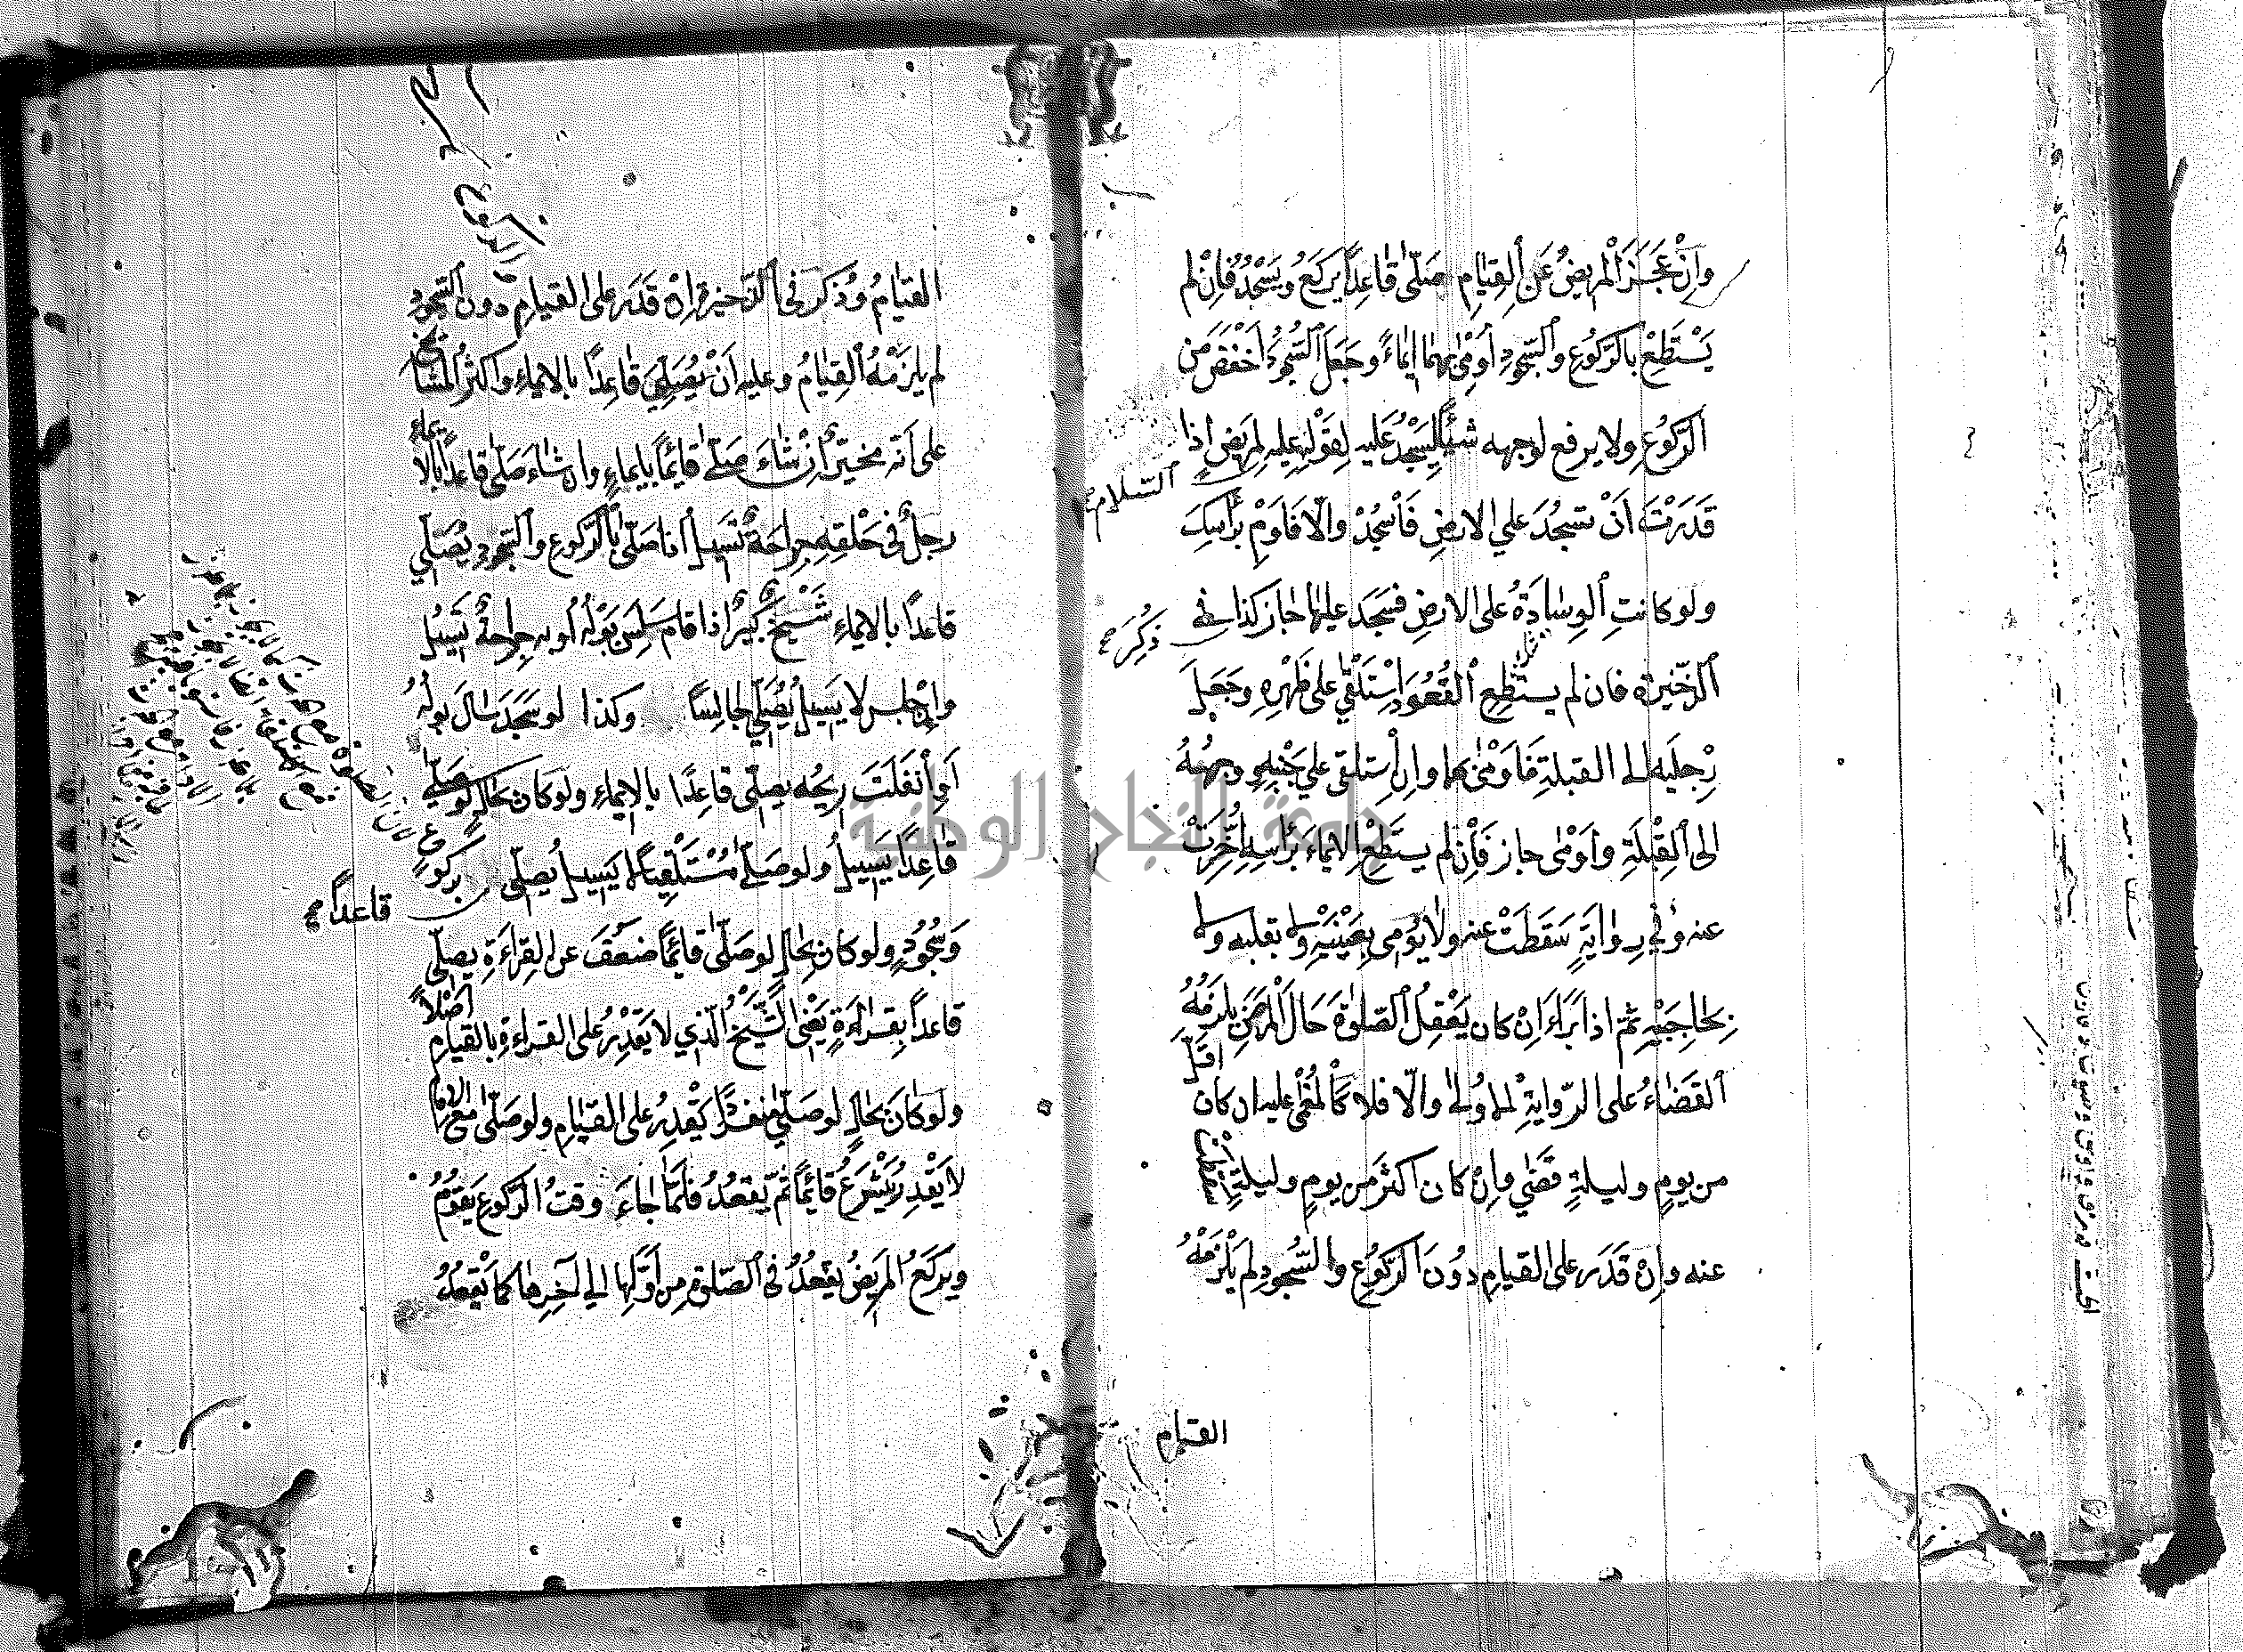 وَاِنْ عَجَزَ الْمَرِيضُ عَنِ اَلْقِيَامِ صَلّٰى قَاعِدًا يَرْكَعُ وَيَسْجُدُ فَاِنْ لم
يَسْتَطِعْ بِالرُّكُوْعِ وَالسّجودِ أَوْمٰى بِهِمَا اِيْمَاءً وجَعَلَ السُّجُوْدَ اَخْفَضَ مَن
اَلرُّكُوعِ ولا يرفع لوجهه شَيْئًا لِيَسْجُدَ عَلَيه لِقَوْلِهِ عليه لِمَرِيْضٍ اِذَا
السّلام صح
قَدَرْتَ اَنْ تسجُدَ علي الارضِ فَاْسْجُدْ وَالّا فَاَوْمِ بِرَأْسِكَ
ولو كانتِ اَلوِسَادَةُ على الارضِ فسَجَدَ عليها جاز كذا في
ذَكَرَ صح
اَلذّخيرة فان لم يستَطِعِ اَلْقُعُودَ اِسْتَلْقٰى على ظَهْرِهِ وجَعَلَ
رِجليه الى القبلةِ فَاَوْمٰى بهما وان اِستلقى علي جَنْبِهِ ووجهُهُ
الى اَلْقِبْلَةِ وأَوْمٰى جاز فَاِنْ لم يستَطِعْ الايمَاءَ بِرَأسِهِ أُخِّرَتْ
عنه وَفي رِوَايَةٍ سَقَطَتْ عنه ولا يُومِى بِعَيْنَيْهِ ولا بقلبه ولا
بِحَاجِبَيْهِ ثمّ اذا بَرَاءَ اِنْ كان يَعْقِلُ الصّلوٰةَ حَالَ الْمَرَضِ يلزَمُهُ
القَضَاءُ على الرّوايةِ الاُولٰى والّا فلا كَالْمُغْمٰى عليه ان كان اقلّ
من يومٍ وليلةٍ قَضٰي وَاِنْ كان اكثرَ من يومٍ وليلةٍ سقطت
عنه وَاِنْ قَدَرَ على القيامِ دُوْنَ الرُّكُوْعِ وَالسُّجودِ لم يَلْزَمْهُ
القيام
القِيَامُ وَذَكَرَ فى الذّخيرة اِنْ قَدَرَ على القيامِ دون السّجودِ
لم يلزَمْهُ القِيَامُ وعليه اَنْ يُصَلِّيَ قاعِدًا بالايماءِ واكثرُ المشايخ
على اَنّه مخيّرٌ اِنْ شَاءَ صَلّى قائِمًا بايماءٍ وان شاءَ صَلّى قاعدًا بالايماء
رجلٌ فى حَلْقِهِ جِرَاحَةٌ تَسِيلُ اذا صَلّى بالرّكوعِ والسّجودِ يُصَلّي
قاعدًا بالايماءِ شَيْخٌ كَبِيرٌ اذا قام سَلِسَ بَوْلُهُ أو به جِراحةٌ تَسيلُ
وان جلس لا يَسِيلُ يُصَلّي جالسًا وكذا لو سَجَدَ سَالَ بولُهُ
اَوِ اْنْفَلَتَ رِيحُه يصلّى قاعِدًا بالايماءِ ولو كان بحالٍ لو صَلّى
قاعدًا يَسِيلُ ولو صَلّى مُسْتَلْقِيًا لا يَسيلُ يُصلّى بركوعٍ
قاعدًا صح
وَسُجُودٍ ولو كان بحالٍ لو صَلّى قائِمًا ضَعُفَ عن القِرَاءَةِ يصلّي
قاعدًا بِقِراءَةٍ يَعْنى الشّيْخَ الّذي لا يَقْدِرُ على القراءةِ بالقيامِ اَصْلًا
ولو كَانَ بحالٍ لو صَلّى منفردًا يَقْدِرُ على القيامِ ولو صَلّى مع الامام
لا يَقْدِرُ يَشْرَعُ قائِمًا ثمّ يقعُدُ فَلَمّا جَاءَ وقتُ الرّكوعِ يَقومُ
ويَركَعُ المريضُ يقعُدُ فى الصّلوة مِن اَوّلِها الي آخِرِها كَمَا يَقعُدُ